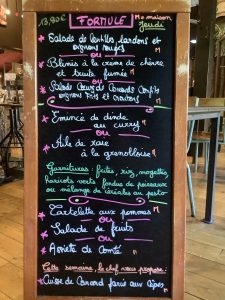 13,90€ FORMULE Me maison
Jeudi
Salade de lentilles, lardons et
oignons rouges
ou
Blinis à la crème de chèvre
et truite fumée
ou
Salade Cœurs de Canards Confits
oignons frits et croutons
Emincé de dinde
au curry
ou
Aile de raie
à la grenobloise
Garnitures : frites, riz, mogettes
haricots verts fondue de poireaux
ou mélange de céréales au pesto
Tartelette aux pommes M
ou
Salade de fruits
ou
Assiette de Comté M
Cette semaine, le chef vous propose :
Cuisse de Canard farcie aux Cèpes